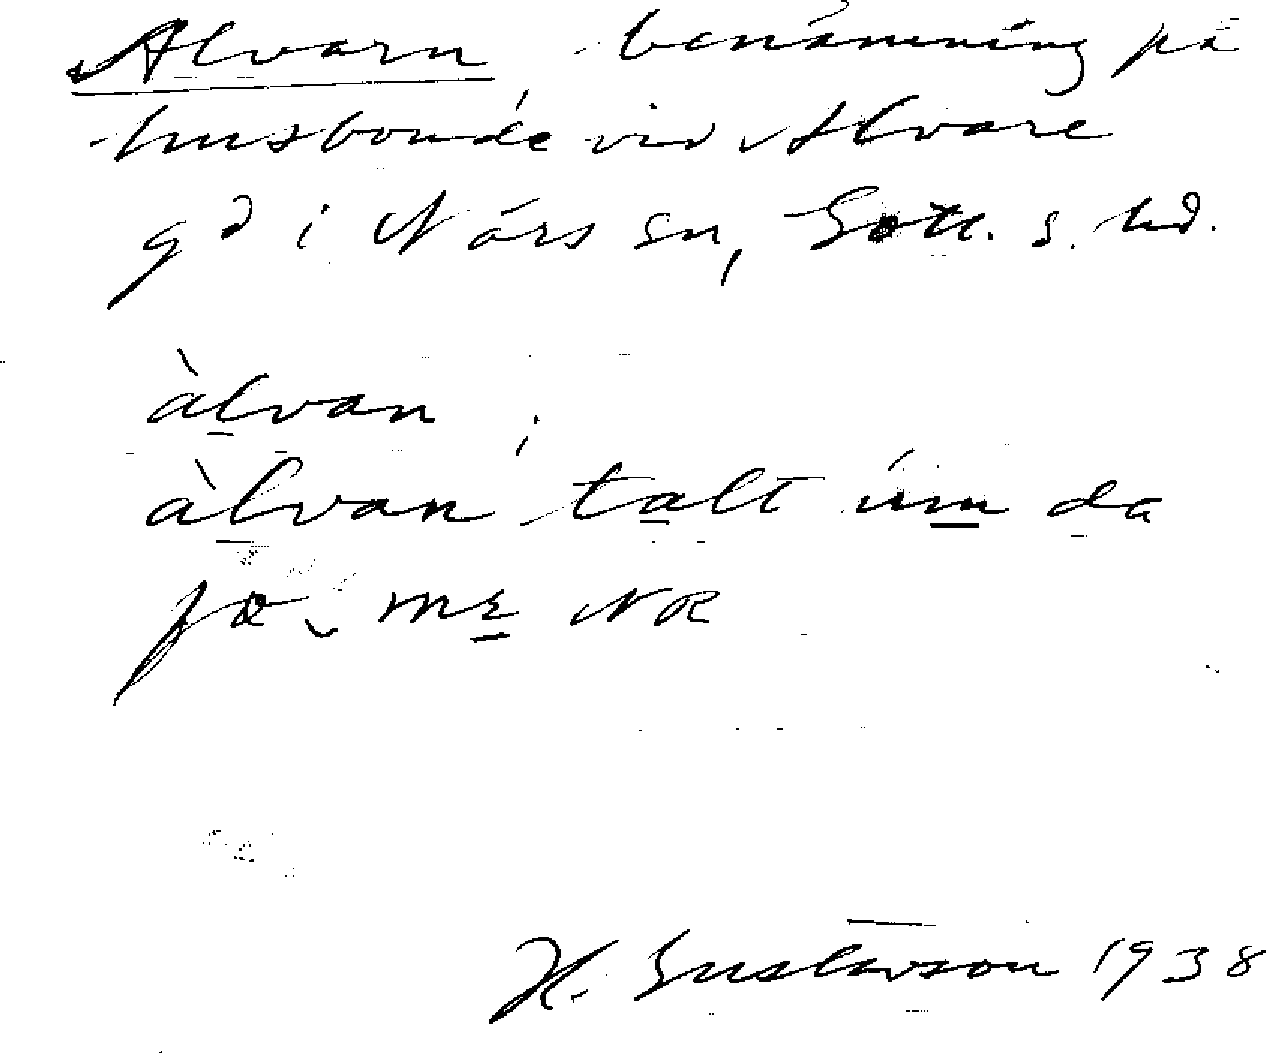 Alvarn benämning på
husbonde vid Alvare
gd i Närs sn, Gotl. s. hd.
àlvan ;
àlvan talt úm da
fø, mɛ NR
H. Gustavson 1938